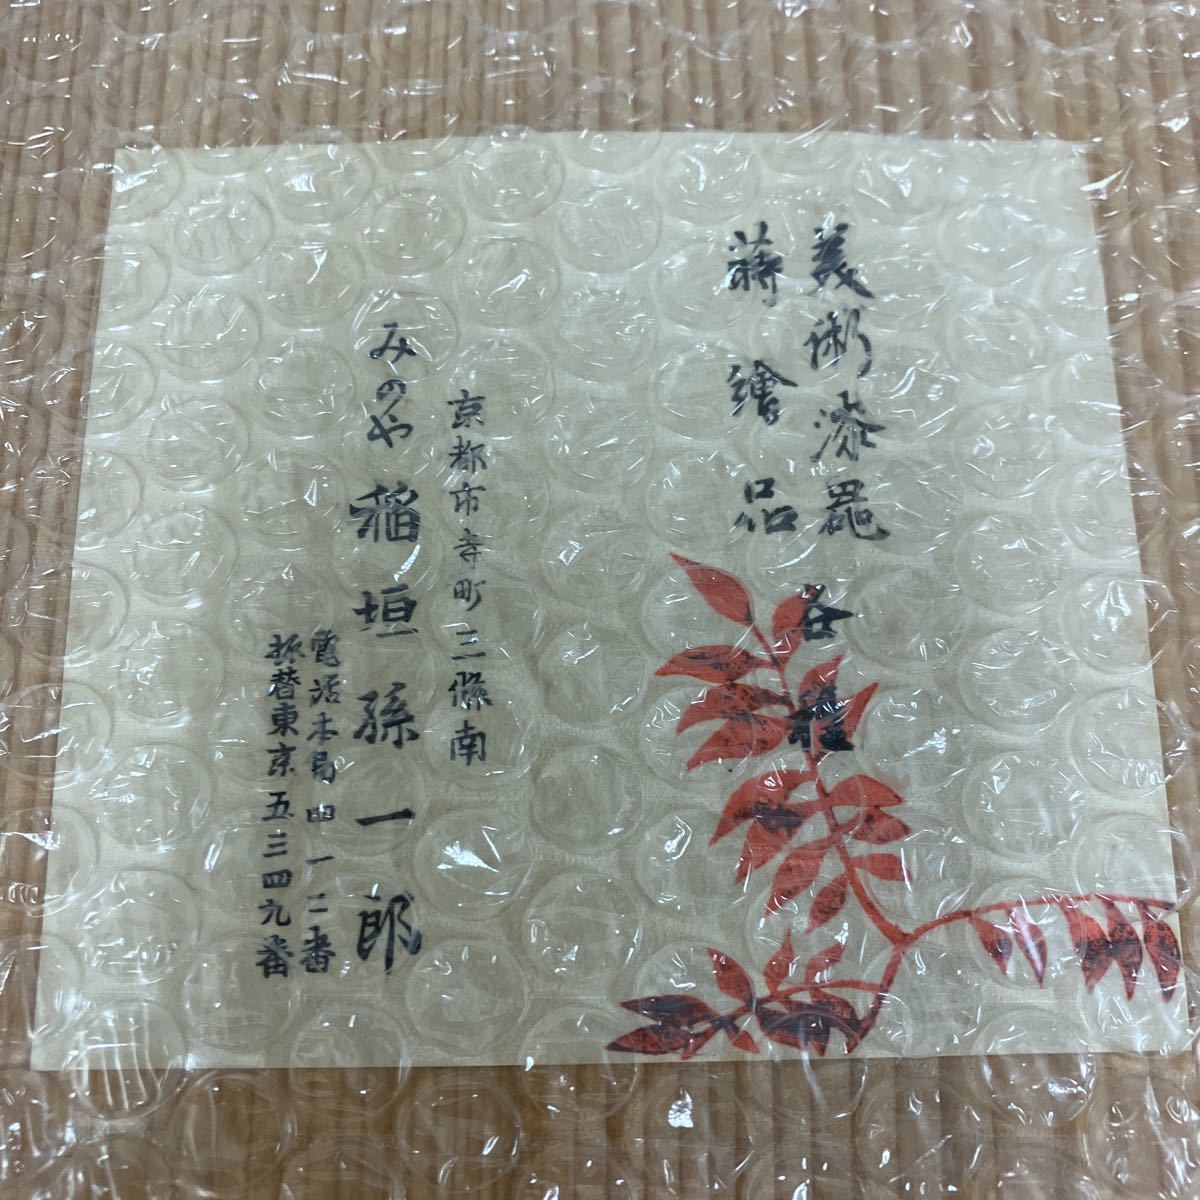 美術漆器各種
蒔繪品
京都市寺町三條南
みのや稲垣孫一郎
電話本局四一二番
振替東京五三四九番